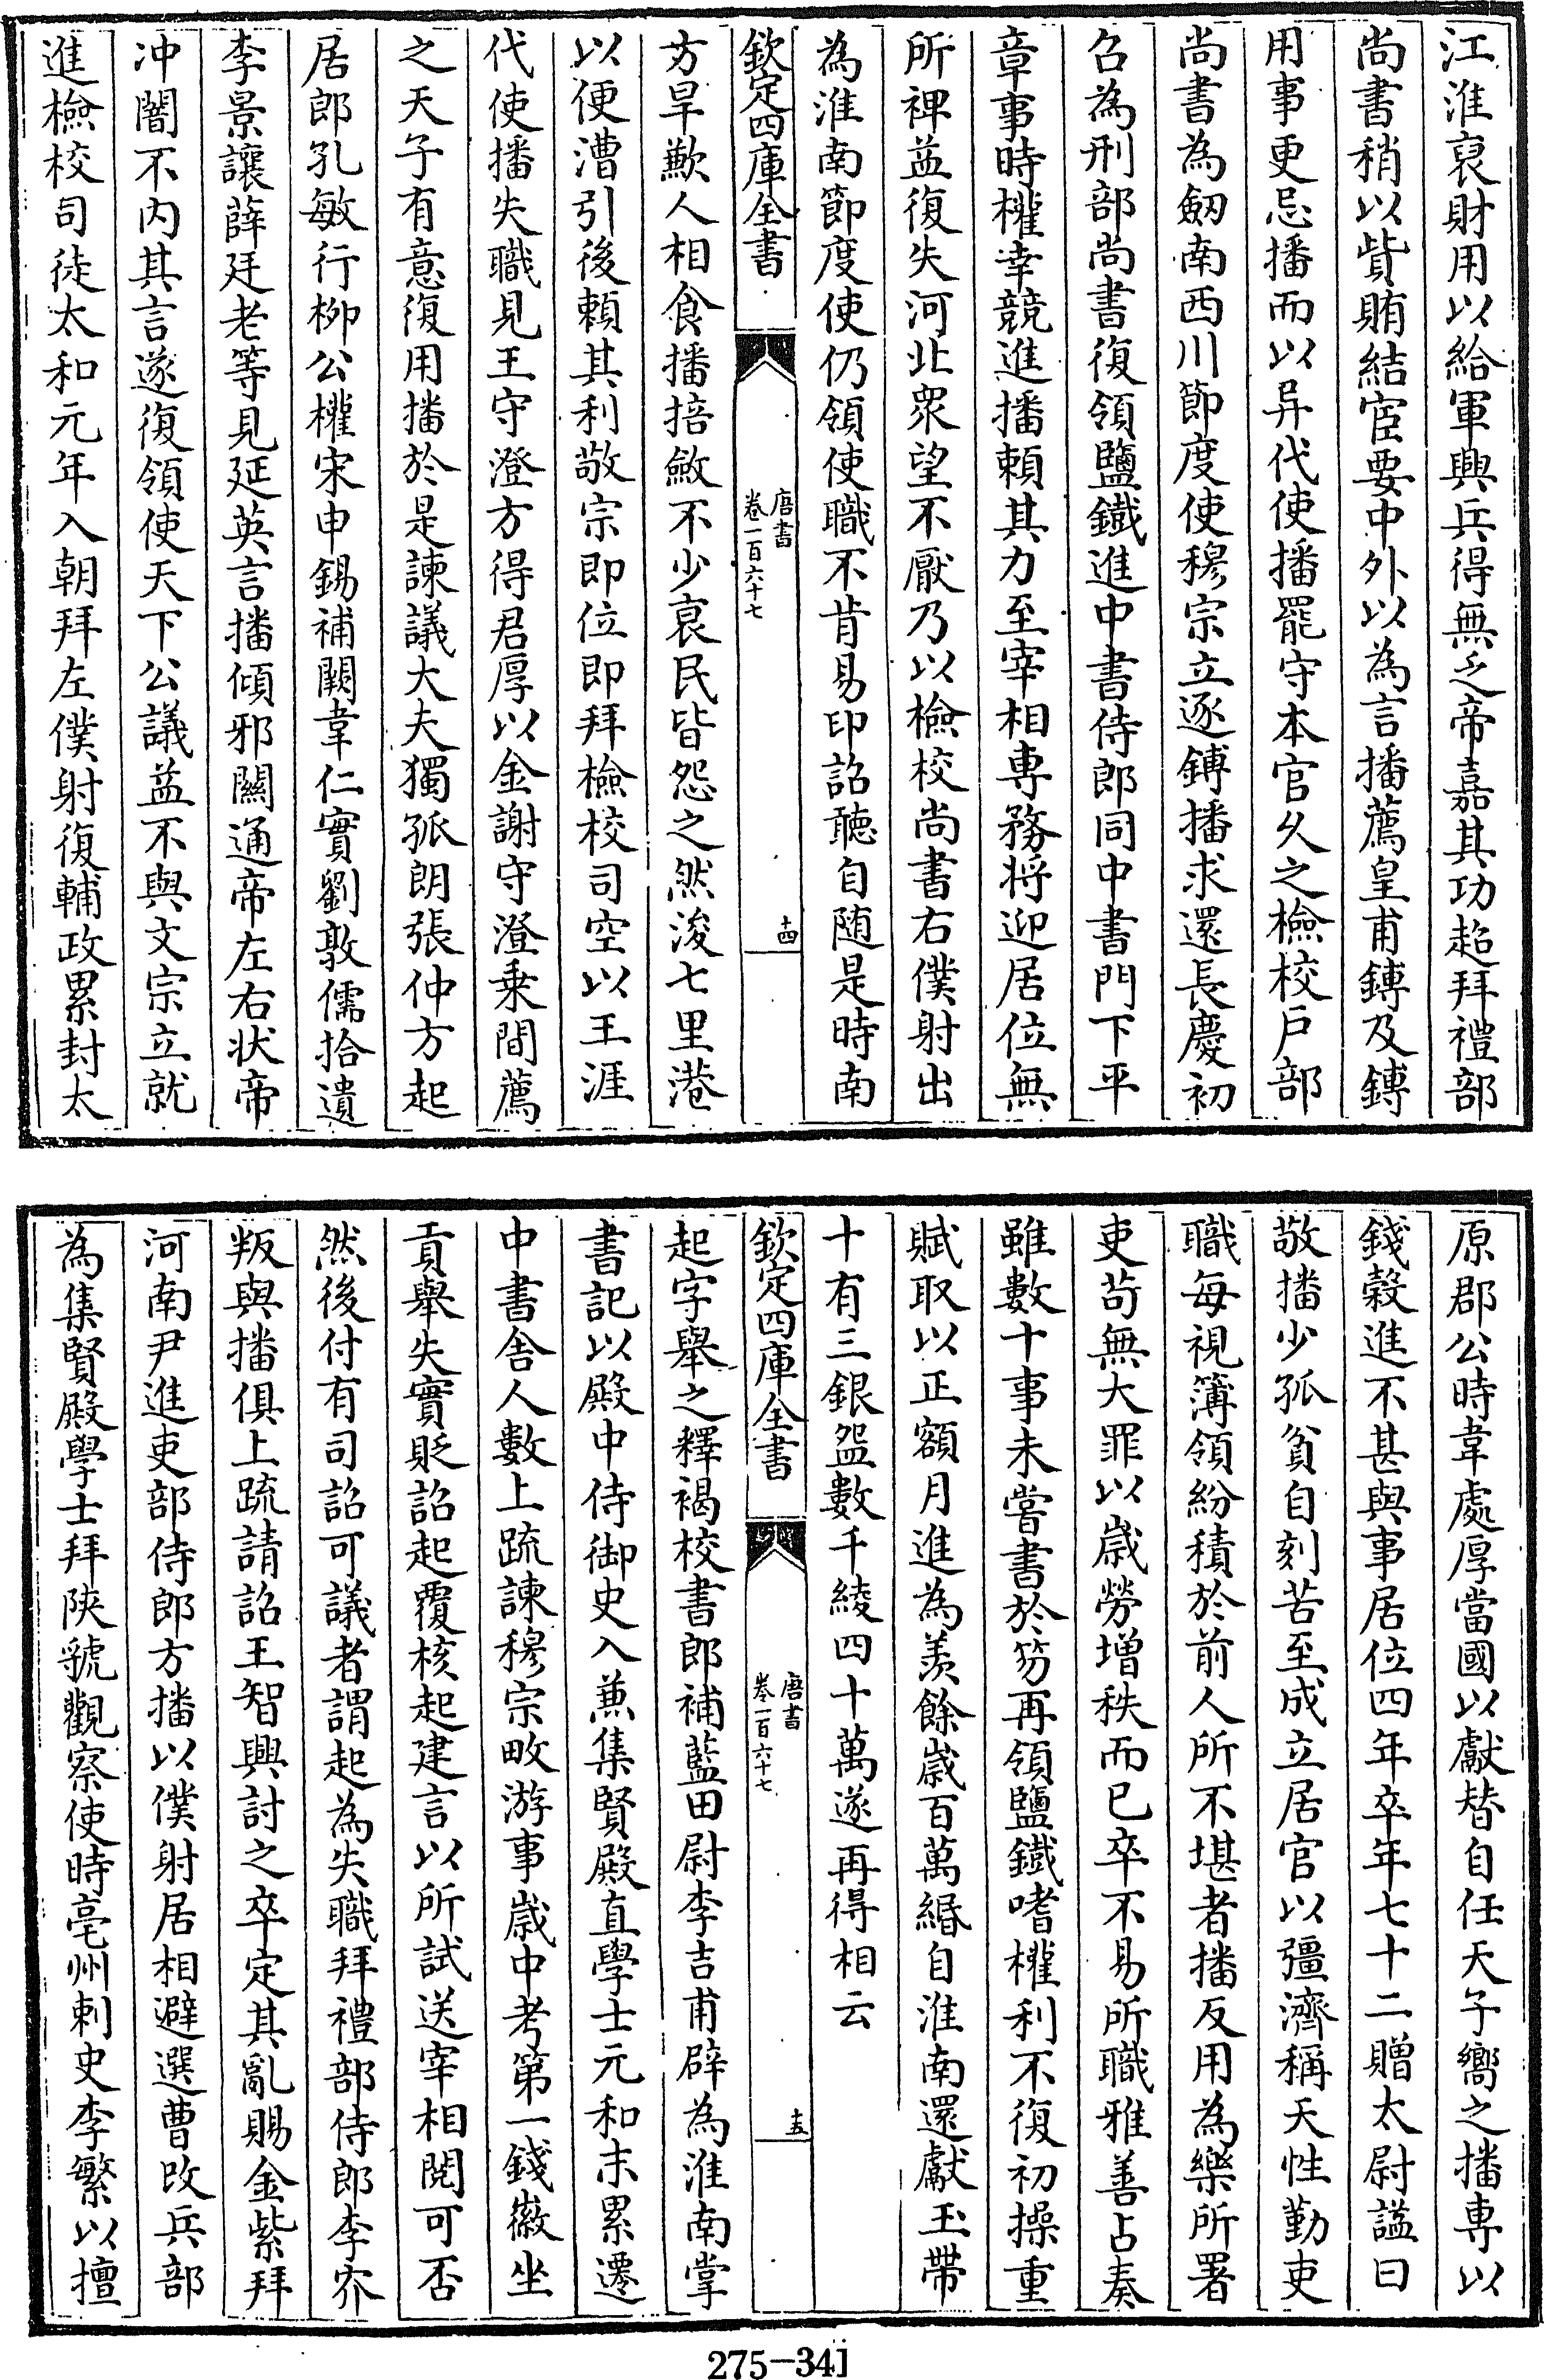 江淮裒財用以給軍興兵得無乏帝嘉其功超拜禮部
尚書稍以貲賄結宦要中外以為言播薦皇甫鎛及鎛
用事更忌播而以异代使播罷守本官久之檢校戶部
尚書為劒南西川節度使穆宗立逐鎛播求還長慶初
召為刑部尚書復領鹽鐵進中書侍郎同中書門下平
章事時權幸競進播賴其力至宰相專務將迎居位無
所裨益復失河北衆望不厭乃以檢校尚書右僕射出
為淮南節度使仍領使職不肯易印詔聽自隨是時南
欽定四庫全書
唐書
卷一百六十七
十四
方旱歉人相食播掊斂不少哀民皆怨之然浚七里港
以便漕引後賴其利敬宗即位即拜檢校司空以王涯
代使播失職見王守澄方得君厚以金謝守澄乘間薦
之天子有意復用播於是諫議大夫獨孤朗張仲方起
居郎孔敏行柳公權宋申錫補闕韋仁實劉敦儒拾遺
李景讓薛廷老等見延英言播傾邪關通帝左右狀帝
冲闇不内其言遂復領使天下公議益不與文宗立就
進檢校司徒太和元年入朝拜左僕射復輔政累封太
原郡公時韋處厚當國以獻替自任天子嚮之播專以
錢穀進不甚與事居位四年卒年七十二贈太尉諡曰
敬播少孤貧自刻苦至成立居官以彊濟稱天性勤吏
職每視簿領紛積於前人所不堪者播反用為樂所署
吏苟無大罪以歲勞增秩而已卒不易所職雅善占奏
雖數十事未嘗書於笏再領鹽鐵嗜權利不復初操重
賦取以正額月進為羡餘歲百萬緡自淮南還獻玉帶
十有三銀盌數千綾四十萬遂再得相云
欽定四庫全書
唐書
卷一百六十七
十五
起字舉之釋褐校書郎補藍田尉李吉甫辟為淮南掌
書記以殿中侍御史入兼集賢殿直學士元和末累遷
中書舍人數上疏諫穆宗畋游事歲中考第一錢徽坐
貢舉失實貶詔起覆核起建言以所試送宰相閱可否
然後付有司詔可議者謂起為失職拜禮部侍郎李㝏
叛與播俱上疏請詔王智興討之卒定其亂賜金紫拜
河南尹進吏部侍郎方播以僕射居相避選曹改兵部
為集賢殿學士拜陝虢觀察使時亳州刺史李繁以擅
275-341